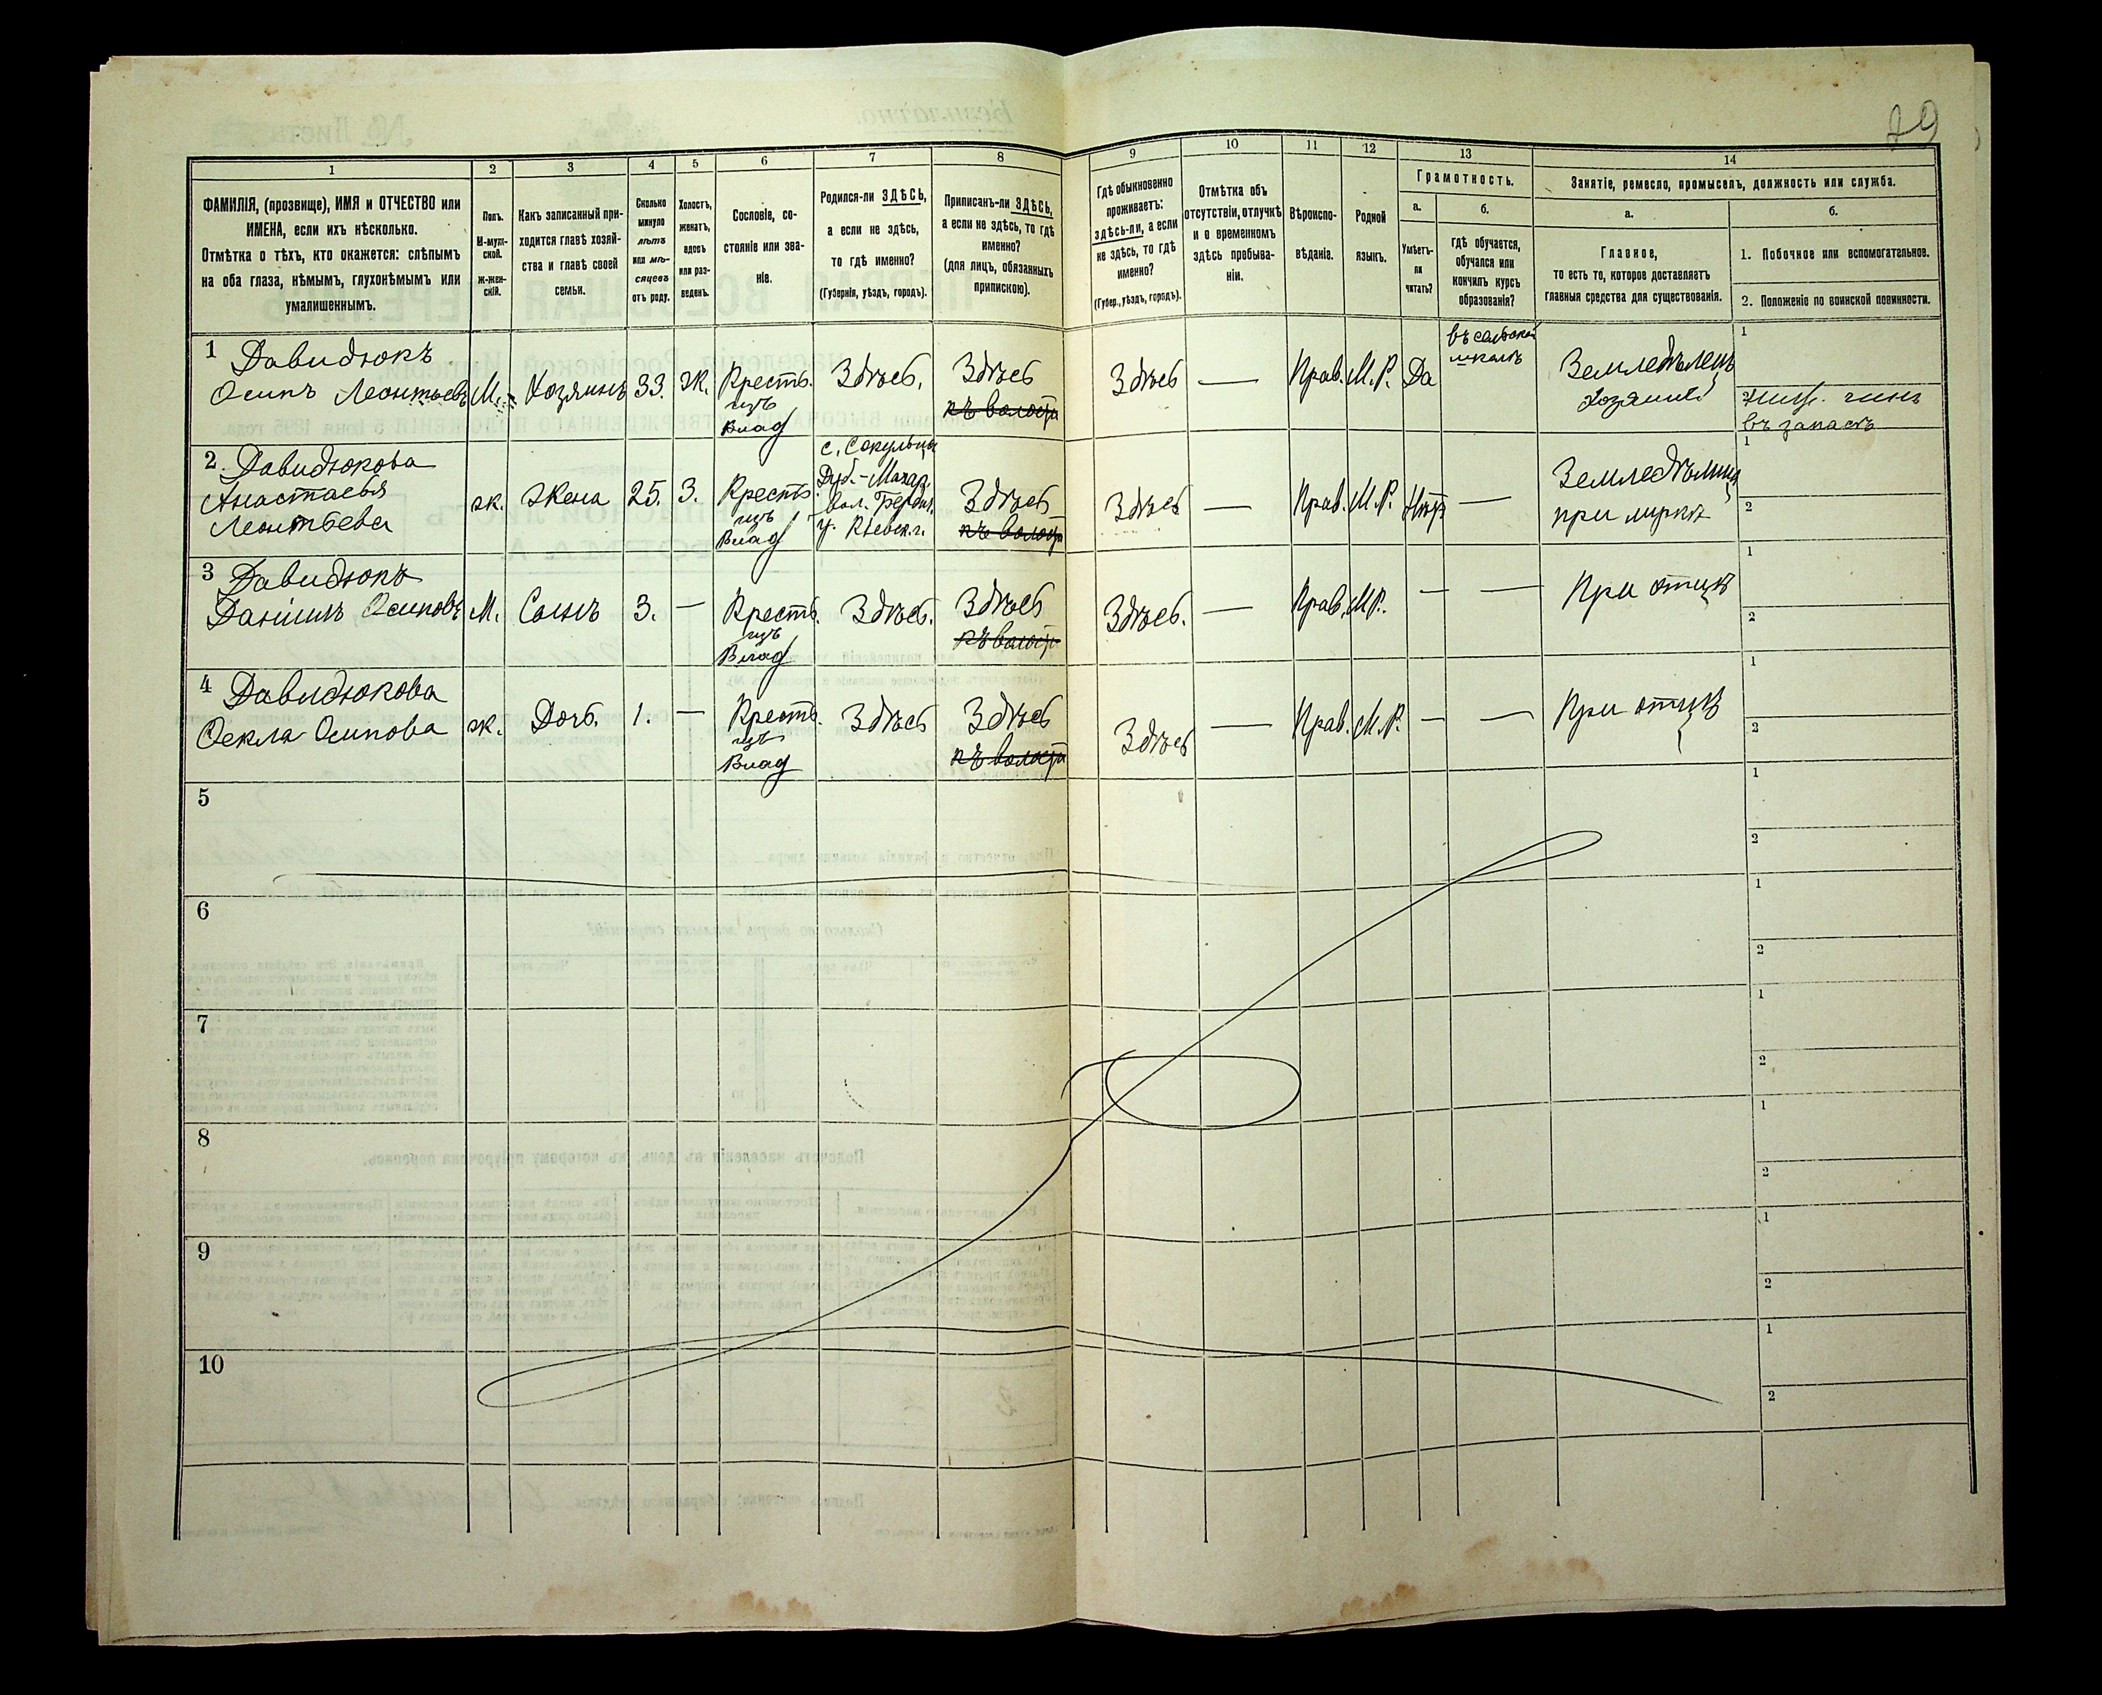 29
1
2
3
4
5
6
7
8
9
10
11
12
13
14
ФАМИЛІЯ, (прозвище), ИМЯ и ОТЧЕСТВО или
ИМЕНА, если ихъ нѣсколько.
Отмѣтка о тѣхъ, кто окажется: слѣпымъ
на оба глаза, нѣмымъ, глухонѣмымъ или
умалишеннымъ.
Полъ.
М-муж-
ской.
Ж-жен-
скій.
Какъ записанный при-
ходится главѣ хозяй-
ства и главѣ своей
семьи.
Сколько
минуло
лѣтъ
или мѣ-
сяцевъ
отъ роду.
Холостъ,
женатъ,
вдовъ
или раз-
веденъ.
Сословіе, со-
стояніе или зва-
ніе.
Родился-ли ЗДѢСЬ,
а если не здѣсь,
то гдѣ именно?
(Губернія, уѣздъ, городъ).
Приписанъ-ли ЗДѢСЬ,
а если не здѣсь, то гдѣ
именно?
(для лицъ, обязанныхъ
припискою).
Гдѣ обыкновенно
проживаетъ:
здѣсь-ли, а если
не здѣсь, то гдѣ
именно?
(Губер., уѣздъ, городъ).
Отмѣтка объ
отсутствіи, отлучкѣ
и о временномъ
здѣсь пребыва-
ніи.
Вѣроиспо-
вѣданіе.
Родной
языкъ.
Грамотность.
а.
Умѣетъ-
ли
читать?
б.
гдѣ обучается,
обучался или
кончилъ курсъ
образованія?
Занятіе, ремесло, промыселъ, должность или служба.
а.
Главное,
то есть то, которое доставляетъ
главныя средства для существованія.
б.
1. Побочное или вспомогательное.
2. Положеніе по воинской повинности.
1 Давидюкъ
Осипъ Леонтьевъ
М.
Хозяинъ
33.
ж.
Крестъ.
изъ
Влад
Здѣсь.
Здѣсь
къ волости
Здѣсь
—
Прав.
М.Р.
Да
въ сельской
школѣ
Земледѣлецъ
Хозяинъ
1
чинъ
въ запасѣ
2. Давидюкова
Анастасья
Леонтьева
ж.
Жена
25.
З.
Крестъ.
изъ
Влад
вол.
у. Кіевск. г.
Здѣсь
къ волости
Здѣсь
—
Прав.
М.Р.
Нѣт
—
при мужѣ
1
2
3 Давидюкъ
Даніилъ Осиповъ
М.
Сынъ
3.
—
Крестъ.
изъ
Влад
Здѣсь.
Здѣсь
къ волости
Здѣсь.
—
Прав.
М.Р.
—
—
При отцѣ
1
2
4 Давидюкова
Ѳекла Осипова
ж.
Дочь.
1.
—
Крестъ.
изъ
Влад
Здѣсь
Здѣсь
къ волости
Здѣсь
—
Прав.
М.Р.
—
—
При отцѣ
1
2
5
1
2
6
1
2
7
1
2
8
1
2
9
1
2
10
1
2